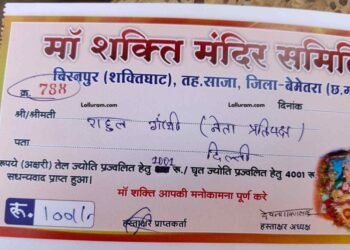 माँ शक्ति मंदिर समिति
बिरनपुर (शक्तिघाट), तह.साजा, जिला-बेमेतरा (छ.ग
क्र. 788
Lalluram.com
दिनांक
श्री/श्रीमती राहुल गांधी (नेता प्रतिपक्ष)
पता दिल्ली
रूपये (अक्षरी) तेल ज्योति प्रज्वलित हेतु 1001 रू./ घृत ज्योति प्रज्वलित हेतु 4001 रू.
सधन्यवाद प्राप्त हुआ।
माँ शक्ति आपकी मनोकामना पूर्ण करे
रू. 1001/-
हस्ताक्षर प्राप्तकर्ता
हस्ताक्षर अध्यक्ष